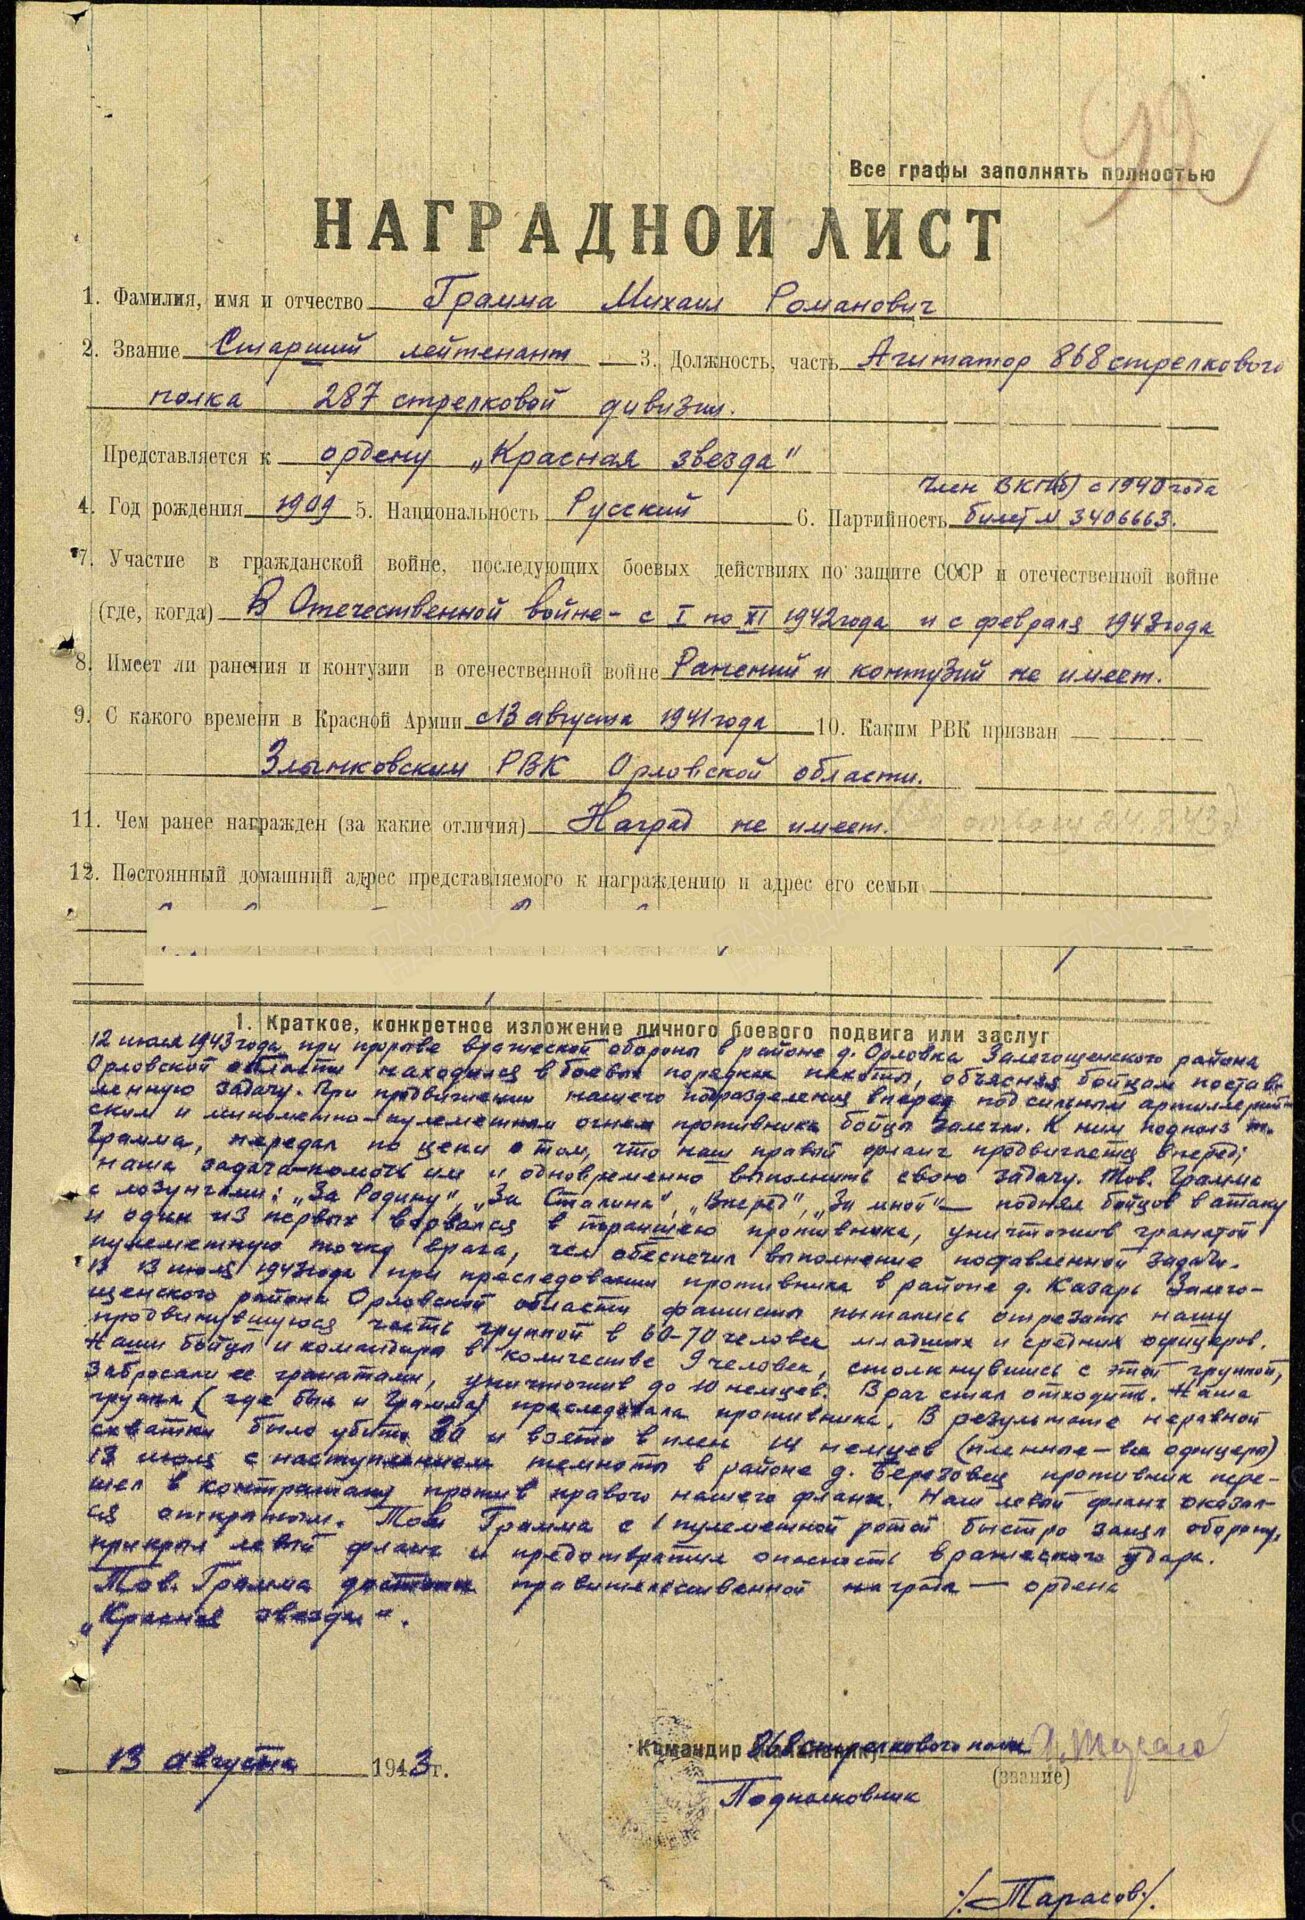 92
Все графы заполнять полностью
НАГРАДНОЙ ЛИСТ
1. Фамилия, имя и отчество Грамма Михаил Романович
2. Звание Старший лейтенант 3. Должность, часть Агитатор 868 стрелкового
полка 287 стрелковой дивизии.
Представляется к ордену „Красная звезда"
член ВКП(б) с 1940 года
4. Год рождения 1909 5. Национальность Русский 6. Партийность билет № 3406663.
7. Участие в гражданской войне, последующих боевых действиях по защите СССР и отечественной войне
(где, когда) В Отечественной войне - с I по XI 1942 года и с февраля 1943 года
8. Имеет ли ранения и контузии в отечественной войне Ранений и контузий не имеет.
9. С какого времени в Красной Армии с 13 августа 1941 года 10. Каким РВК призван
Злынковским РВК Орловской области.
11. Чем ранее награжден (за какие отличия) Наград не имеет.
12. Постоянный домашний адрес представляемого к награждению и адрес его семьи
1. Краткое, конкретное изложение личного боевого подвига или заслуг
12 июля 1943 года при прорыве вражеской обороны в районе д. Орловка Залегощенского района
Орловской области находился в боевых порядках пехоты, объясняя бойцам постав-
ленную задачу. При продвижении нашего подразделения вперед под сильным артиллерий-
ским и минометно-пулеметным огнем противника бойцы залегли. К ним подполз т.
Грамма, передал по цепи о том, что наш правый фланг продвигается вперед;
наша задача - помочь им и одновременно выполнить свою задачу. Тов. Грамма
с лозунгами: „За Родину", „За Сталина", „Вперед", „За мной" — поднял бойцов в атаку
и один из первых ворвался в траншею противника, уничтожив гранатой
пулеметную точку врага, чем обеспечил выполнение поставленной задачи.
13 июля 1943 года при преследовании противника в районе д. Казарь Залего-
щенского района Орловской области фашисты пытались отрезать нашу
продвинувшуюся часть группой в 60-70 человек младших и средних офицеров.
Наши бойцы и командира в количестве 9 человек, столкнувшись с этой группой,
забросали ее гранатами, уничтожив до 10 немцев. Враг стал отходить. Наша
группа (где был и Грамма) преследовала противника. В результате неравной
схватки было убито 30 и взято в плен 14 немцев (пленные - все офицеры)
13 июля с наступлением темноты в районе д. Березовец противник пере-
шел в контратаку против правого нашего фланга. Наш левый фланг оказал-
ся открытым. Тов. Грамма с 1 пулеметной ротой быстро занял оборону,
прикрыл левый фланг и предотвратил опасность вражеского удара.
Тов. Грамма достоин правительственной награды — ордена
„Красная звезда".
13 августа 1943 г.
Командир 868 стрелкового полка
(звание)
Подполковник
/Тарасов/.